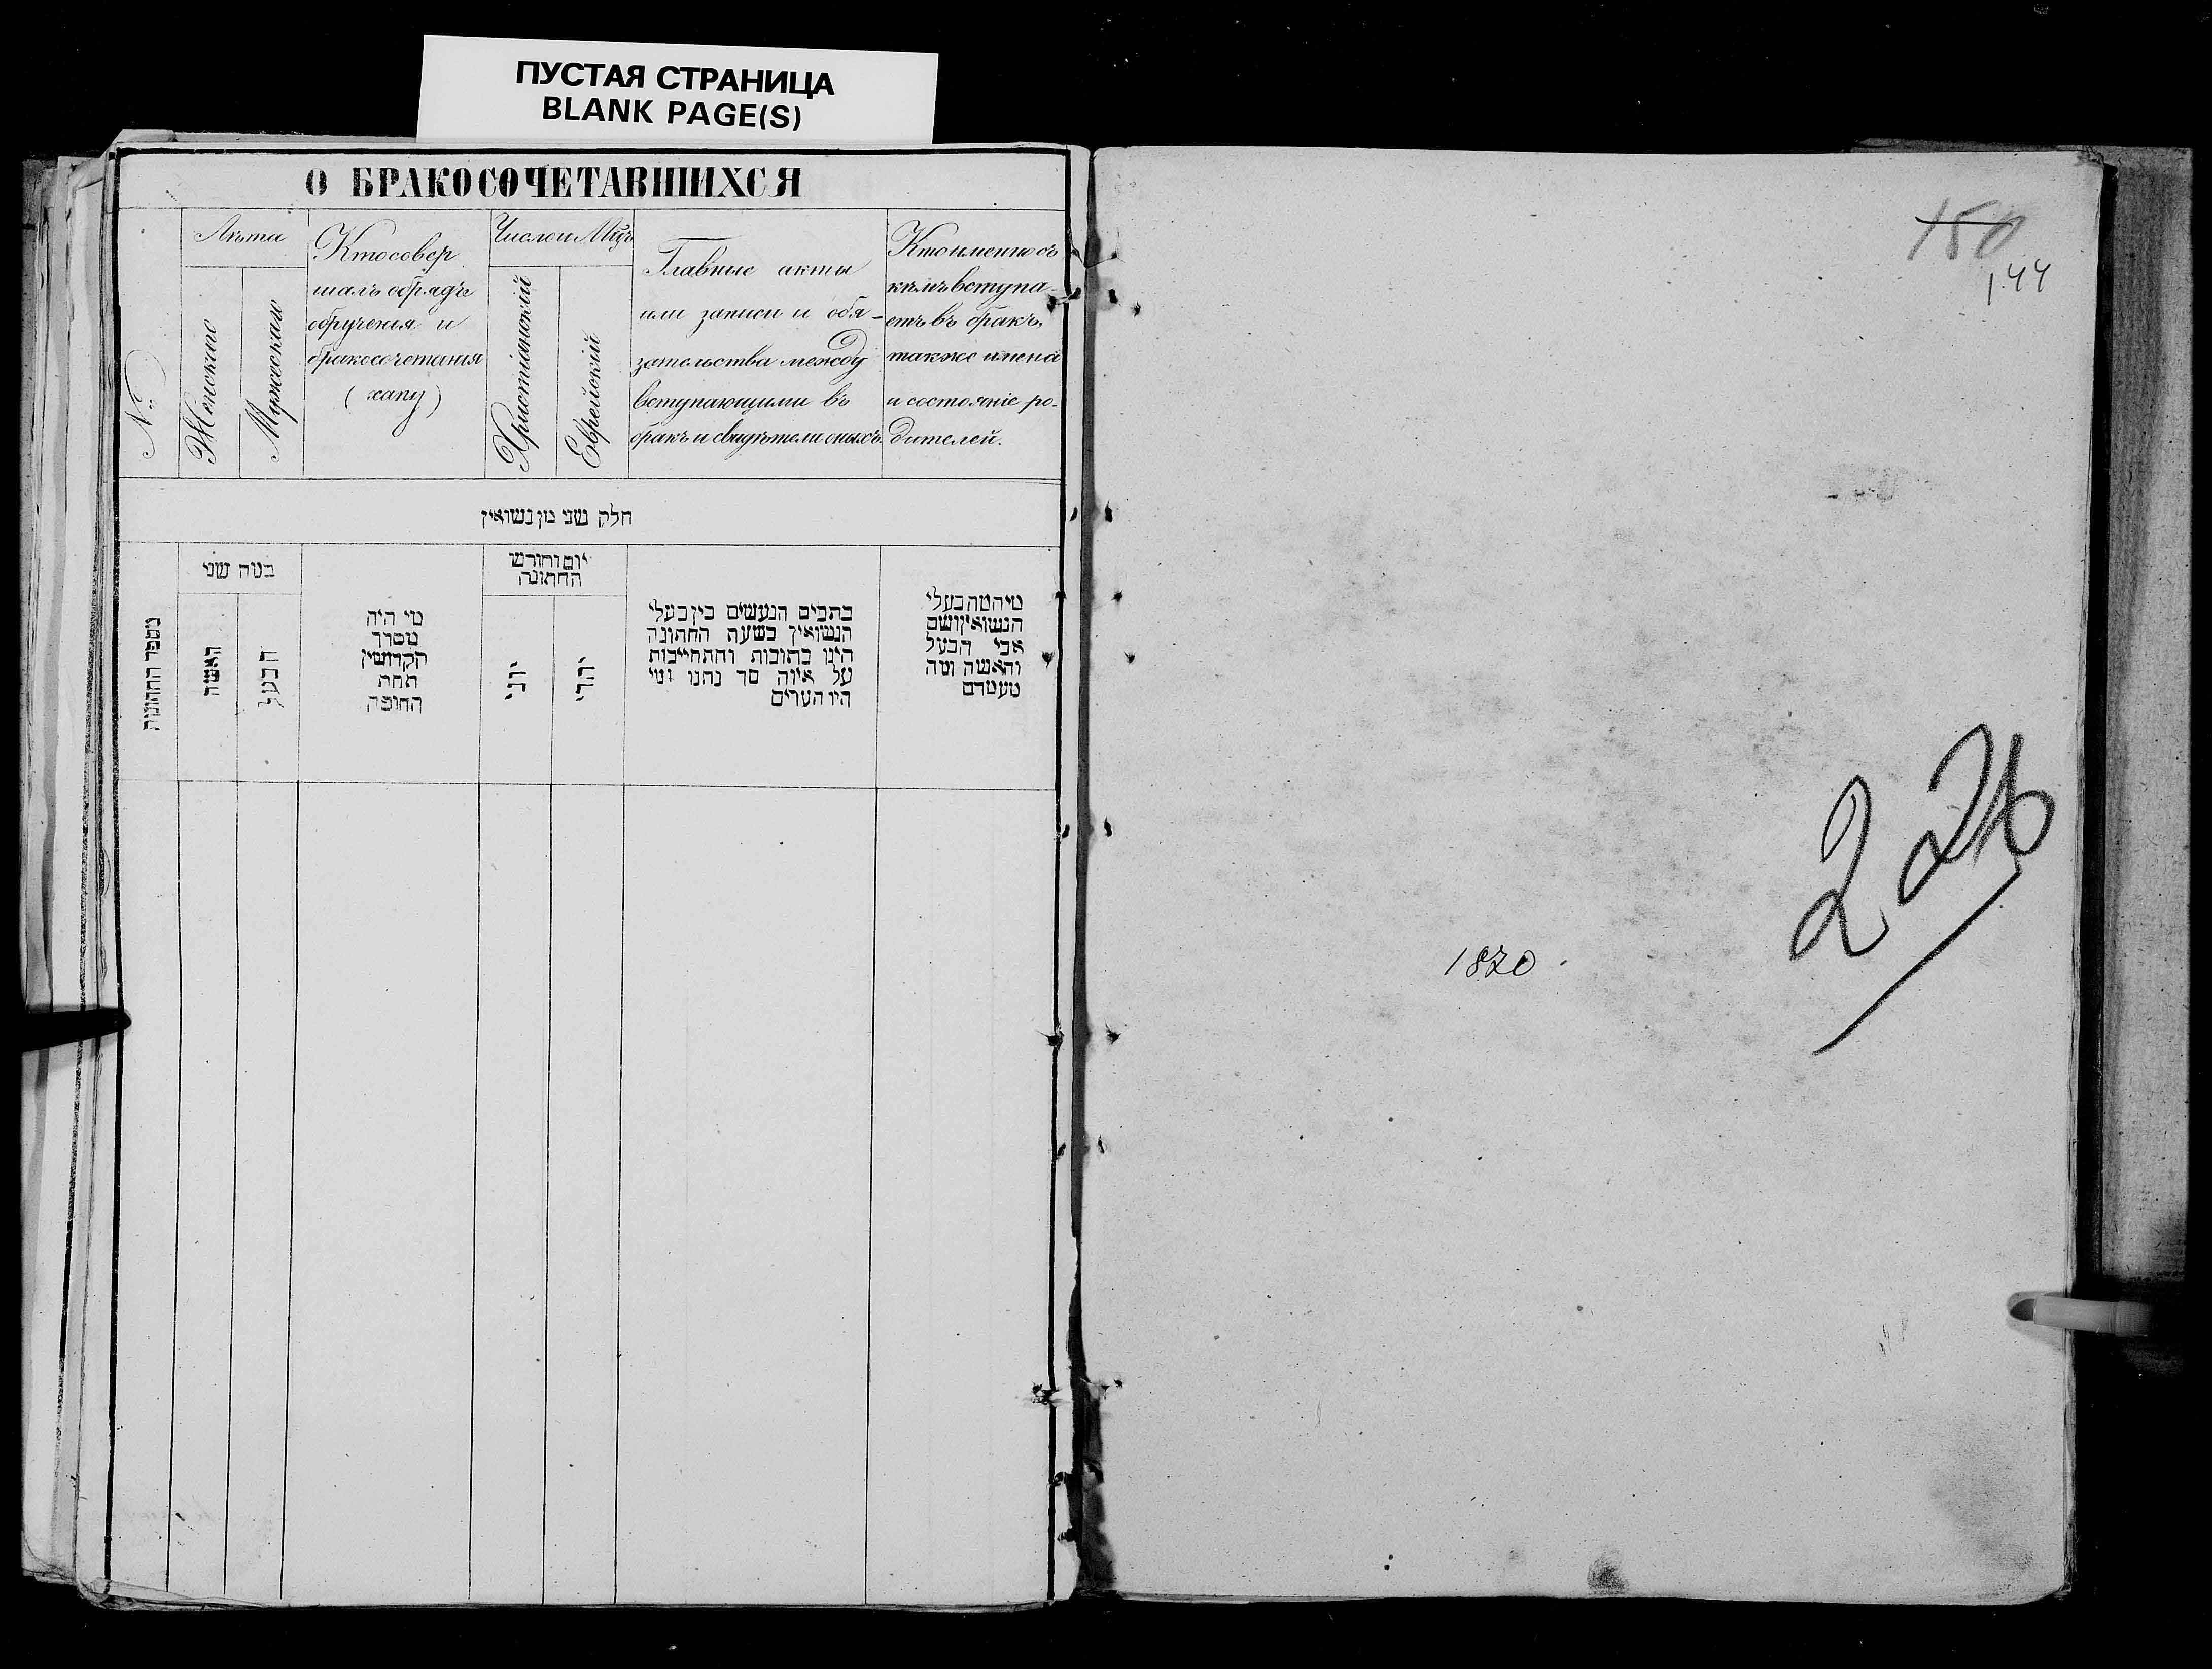 ПУСТАЯ СТРАНИЦА
BLANK PAGE(S)
О БРАКОСОЧЕТАВШИХСЯ
№
Лѣта
Женскаго
Мужескаго
Кто совер
шалъ обрядъ
обрученія и
бракосочетанія
(хапу)
Число и Мцъ
Христіанскій
Еврейскій
Главные акты
или записи и обя-
зательства между
вступающими въ
бракъ и свидѣтели оныхъ.
Кто именно съ
кѣмъ вступа-
етъ въ бракъ,
также имена
и состояніе ро-
дителей.
חלק שני מן נשואין
מספר החתונות
במה שני
האשה
הבעל
מי היה
מסדר
הקדושין
תחת
החופה
יום וחודש
החתונה
יוני
יהדי
כתבים הנעשים בין בעלי
הנשואין בשעת החתונה
הינו כתובות והתחייבות
על איזה סך נתנו ומי
היו העדים
מי המה בעלי
הנשואין ושם
אבי הבעל
והאשה ומה
מעמדם
150
144
226
1870